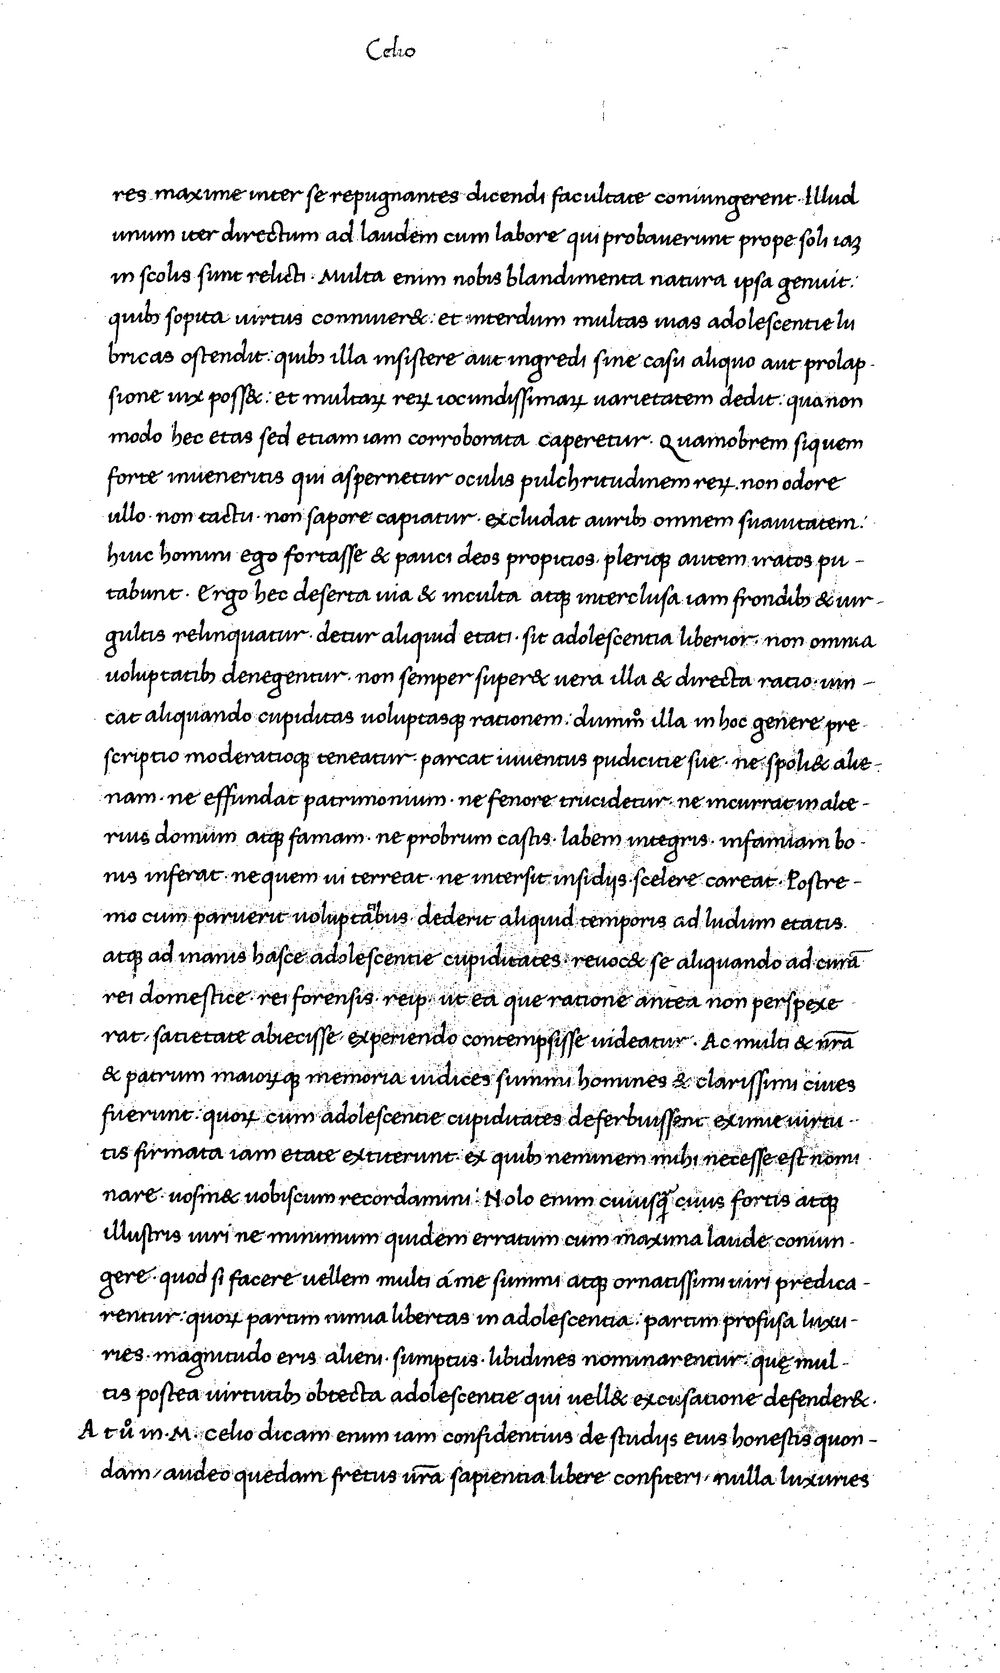 Celio
res maxime inter se repugnantes dicendi facultate coniungerent. Illud
unum iter directum ad laudem cum labore qui probauerunt prope soli iaꝫ
in scolis sunt relicti. Multa enim nobis blandimenta natura ipsa genuit:
quibꝫ sopita uirtus conniuer&: et interdum multas uias adolescentie lu
bricas ostendit: quibꝫ illa insistere aut ingredi sine casu aliquo aut prolap-
sione uix poss&: et multaꝝ reꝝ iocundissimaꝝ uarietatem dedit: qua non
modo hec etas sed etiam iam corroborata caperetur. Quamobrem siquem
forte inueneritis qui aspernetur oculis pulchritudinem reꝝ. non odore
ullo. non tactu. non sapore capiatur. excludat auribꝫ omnem suauitatem:
huic homini ego fortasse & pauci deos propitios. pleriqꝫ autem iratos pu-
tabunt. Ergo hec deserta uia & inculta atqꝫ interclusa iam frondibꝫ & uir-
gultis relinquatur. detur aliquid etati. sit adolescentia liberior. non omnia
uoluptatibꝫ denegentur. non semper super& uera illa & directa ratio. uin-
cat aliquando cupiditas uoluptasqꝫ rationem: dummͦ illa in hoc genere pre
scriptio moderatioqꝫ teneatur. parcat iuuentus pudicitie sue. ne spoli& alie-
nam. ne effundat patrimonium. ne fenore trucidetur. ne incurrat in alte-
rius domum atqꝫ famam. ne probrum castis. labem integris. infamiam bo-
nis inferat. ne quem ui terreat. ne intersit insidijs. scelere careat. Postre-
mo cum paruerit uoluptatibus. dederit aliquid temporis ad ludum etatis.
atqꝫ ad inanis hasce adolescentie cupiditates. reuoc& se aliquando ad curā
rei domestice. rei forensis. reip. ut ea que ratione antea non perspexe
rat, satietate abiecisse, experiendo contempsisse uideatur. Ac multi & nr̄a
& patrum maioꝝqꝫ memoria iudices summi homines & clarissimi ciues
fuerunt: quoꝝ cum adolescentie cupiditates deferbuissent eximie uirtu-
tis firmata iam etate extiterunt. ex quibꝫ neminem mihi necesse est nomi
nare. uosm& uobiscum recordamini. Nolo enim cuiusqꝫ ciuis fortis atqꝫ
illustris uiri ne minimum quidem erratum cum maxima laude coniun-
gere. quod si facere uellem multi a me summi atqꝫ ornatissimi uiri predica-
rentur: quoꝝ partim nimia libertas in adolescentia: partim profusa luxu-
ries. magnitudo eris alieni. sumptus. libidines nominarentur: quę mul-
tis postea uirtutibꝫ obtecta adolescentie qui uell& excusatione defender&.
At uͦ in. M. Celio dicam enim iam confidentius de studijs eius honestis quon-
dam, audeo quedam fretus ur̄a sapientia libere confiteri, nulla luxuries